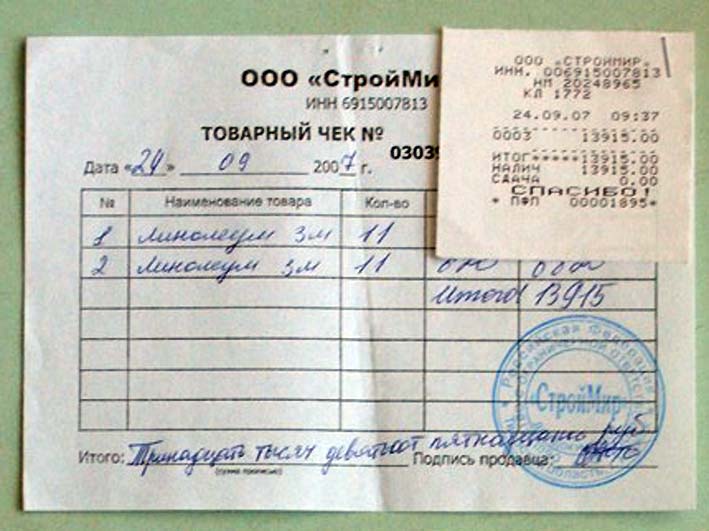 ООО «СтройМи
ИНН 6915007813
ТОВАРНЫЙ ЧЕК №
0303
Дата «24» 09 2007 г.
№ Наименование товара Кол-во
1 линолеум 3м 11
2 линолеум 3м 11
Итого 13915
Итого: Тринадцать тысяч девятьсот пятнадцать руб
(сумма прописью)
Подпись продавца:
Российская Федерация
«СтройМир»
ООО «СТРОЙМИР»
ИНН. 006915007813
НМ 20248965
КЛ 1772
24.09.07 09:37
0003 13915.00
ИТОГ*****13915.00
НАЛИЧ 13915.00
СДАЧА 0.00
СПАСИБО!
* ПФП 00001895*